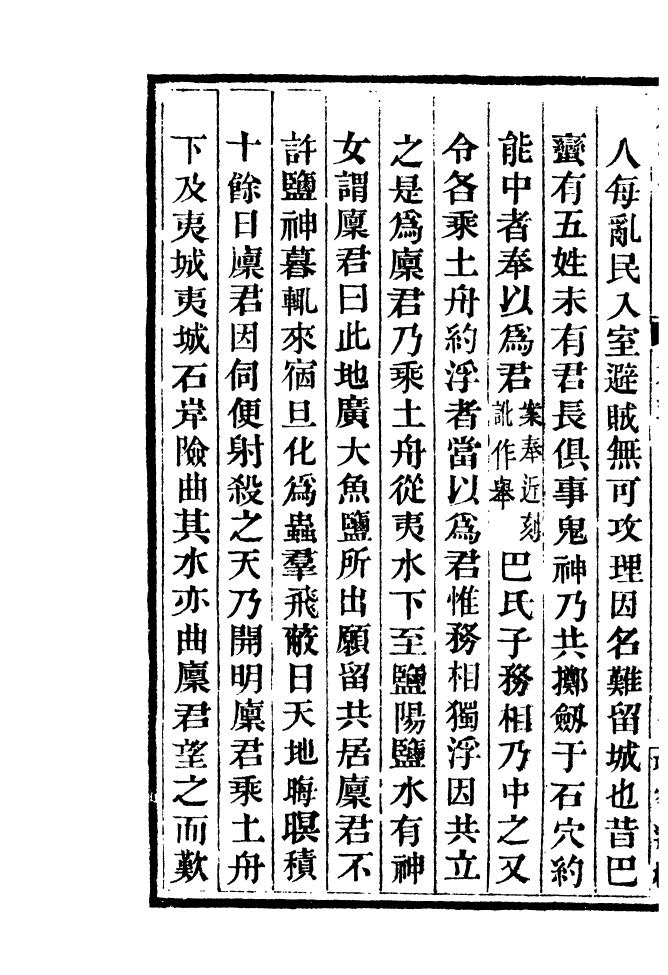 人每亂民入室避賊無可攻理因名難留城也昔巴
蠻有五姓未有君長俱事鬼神乃共擲劔于石穴約
能中者奉以爲君案奉近刻訛作舉巴氏子務相乃中之又
令各乘土舟約浮者當以爲君惟務相獨浮因共立
之是爲廩君乃乘土舟從夷水下至鹽陽鹽水有神
女謂廩君曰此地廣大魚鹽所出願留共居廩君不
許鹽神暮輒來宿旦化爲蟲羣飛蔽日天地晦暝積
十餘日廩君因伺便射殺之天乃開明廩君乘土舟
下及夷城夷城石岸險曲其水亦曲廩君望之而歎